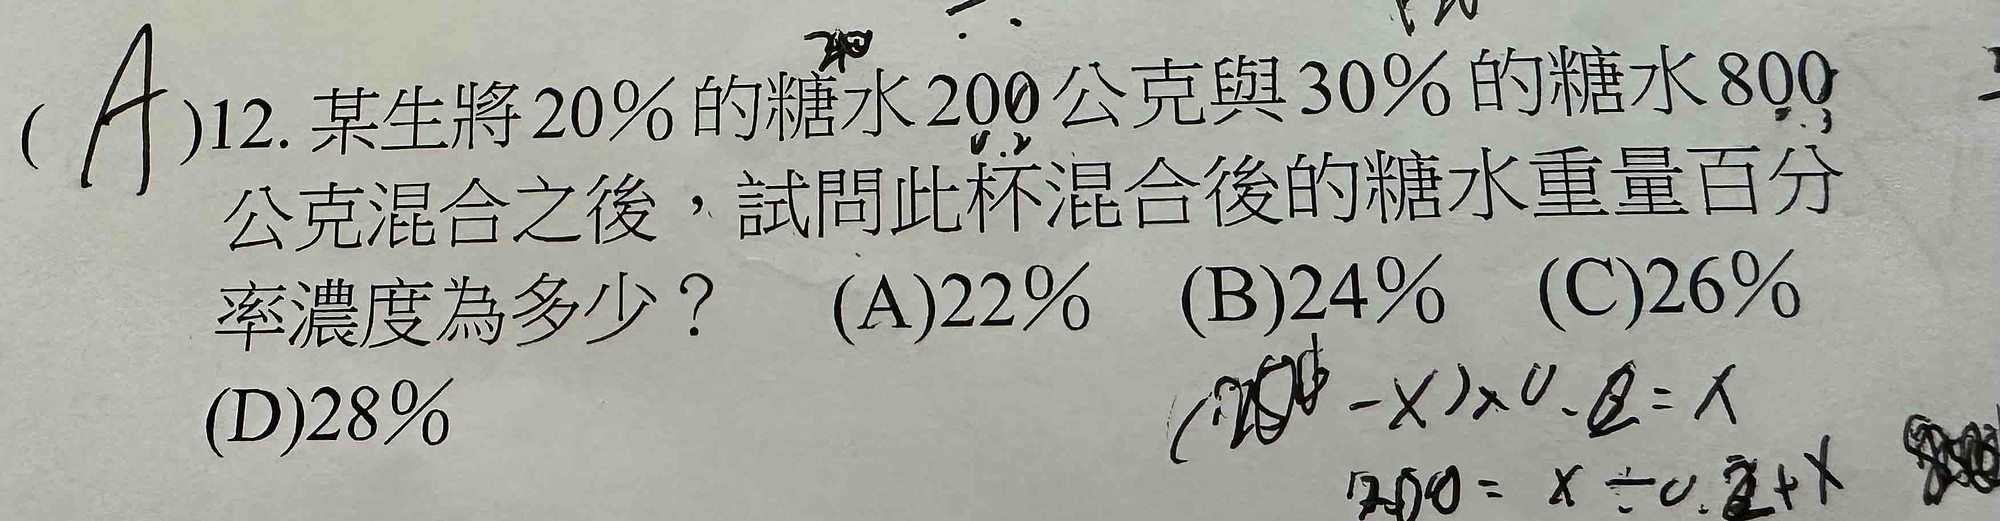 (A)12. 某生將20%的糖水200公克與30%的糖水800
0.2
公克混合之後，試問此杯混合後的糖水重量百分
率濃度為多少？ (A)22% (B)24% (C)26%
(D)28%
-X)×0.2=X
200=X÷0.2+X